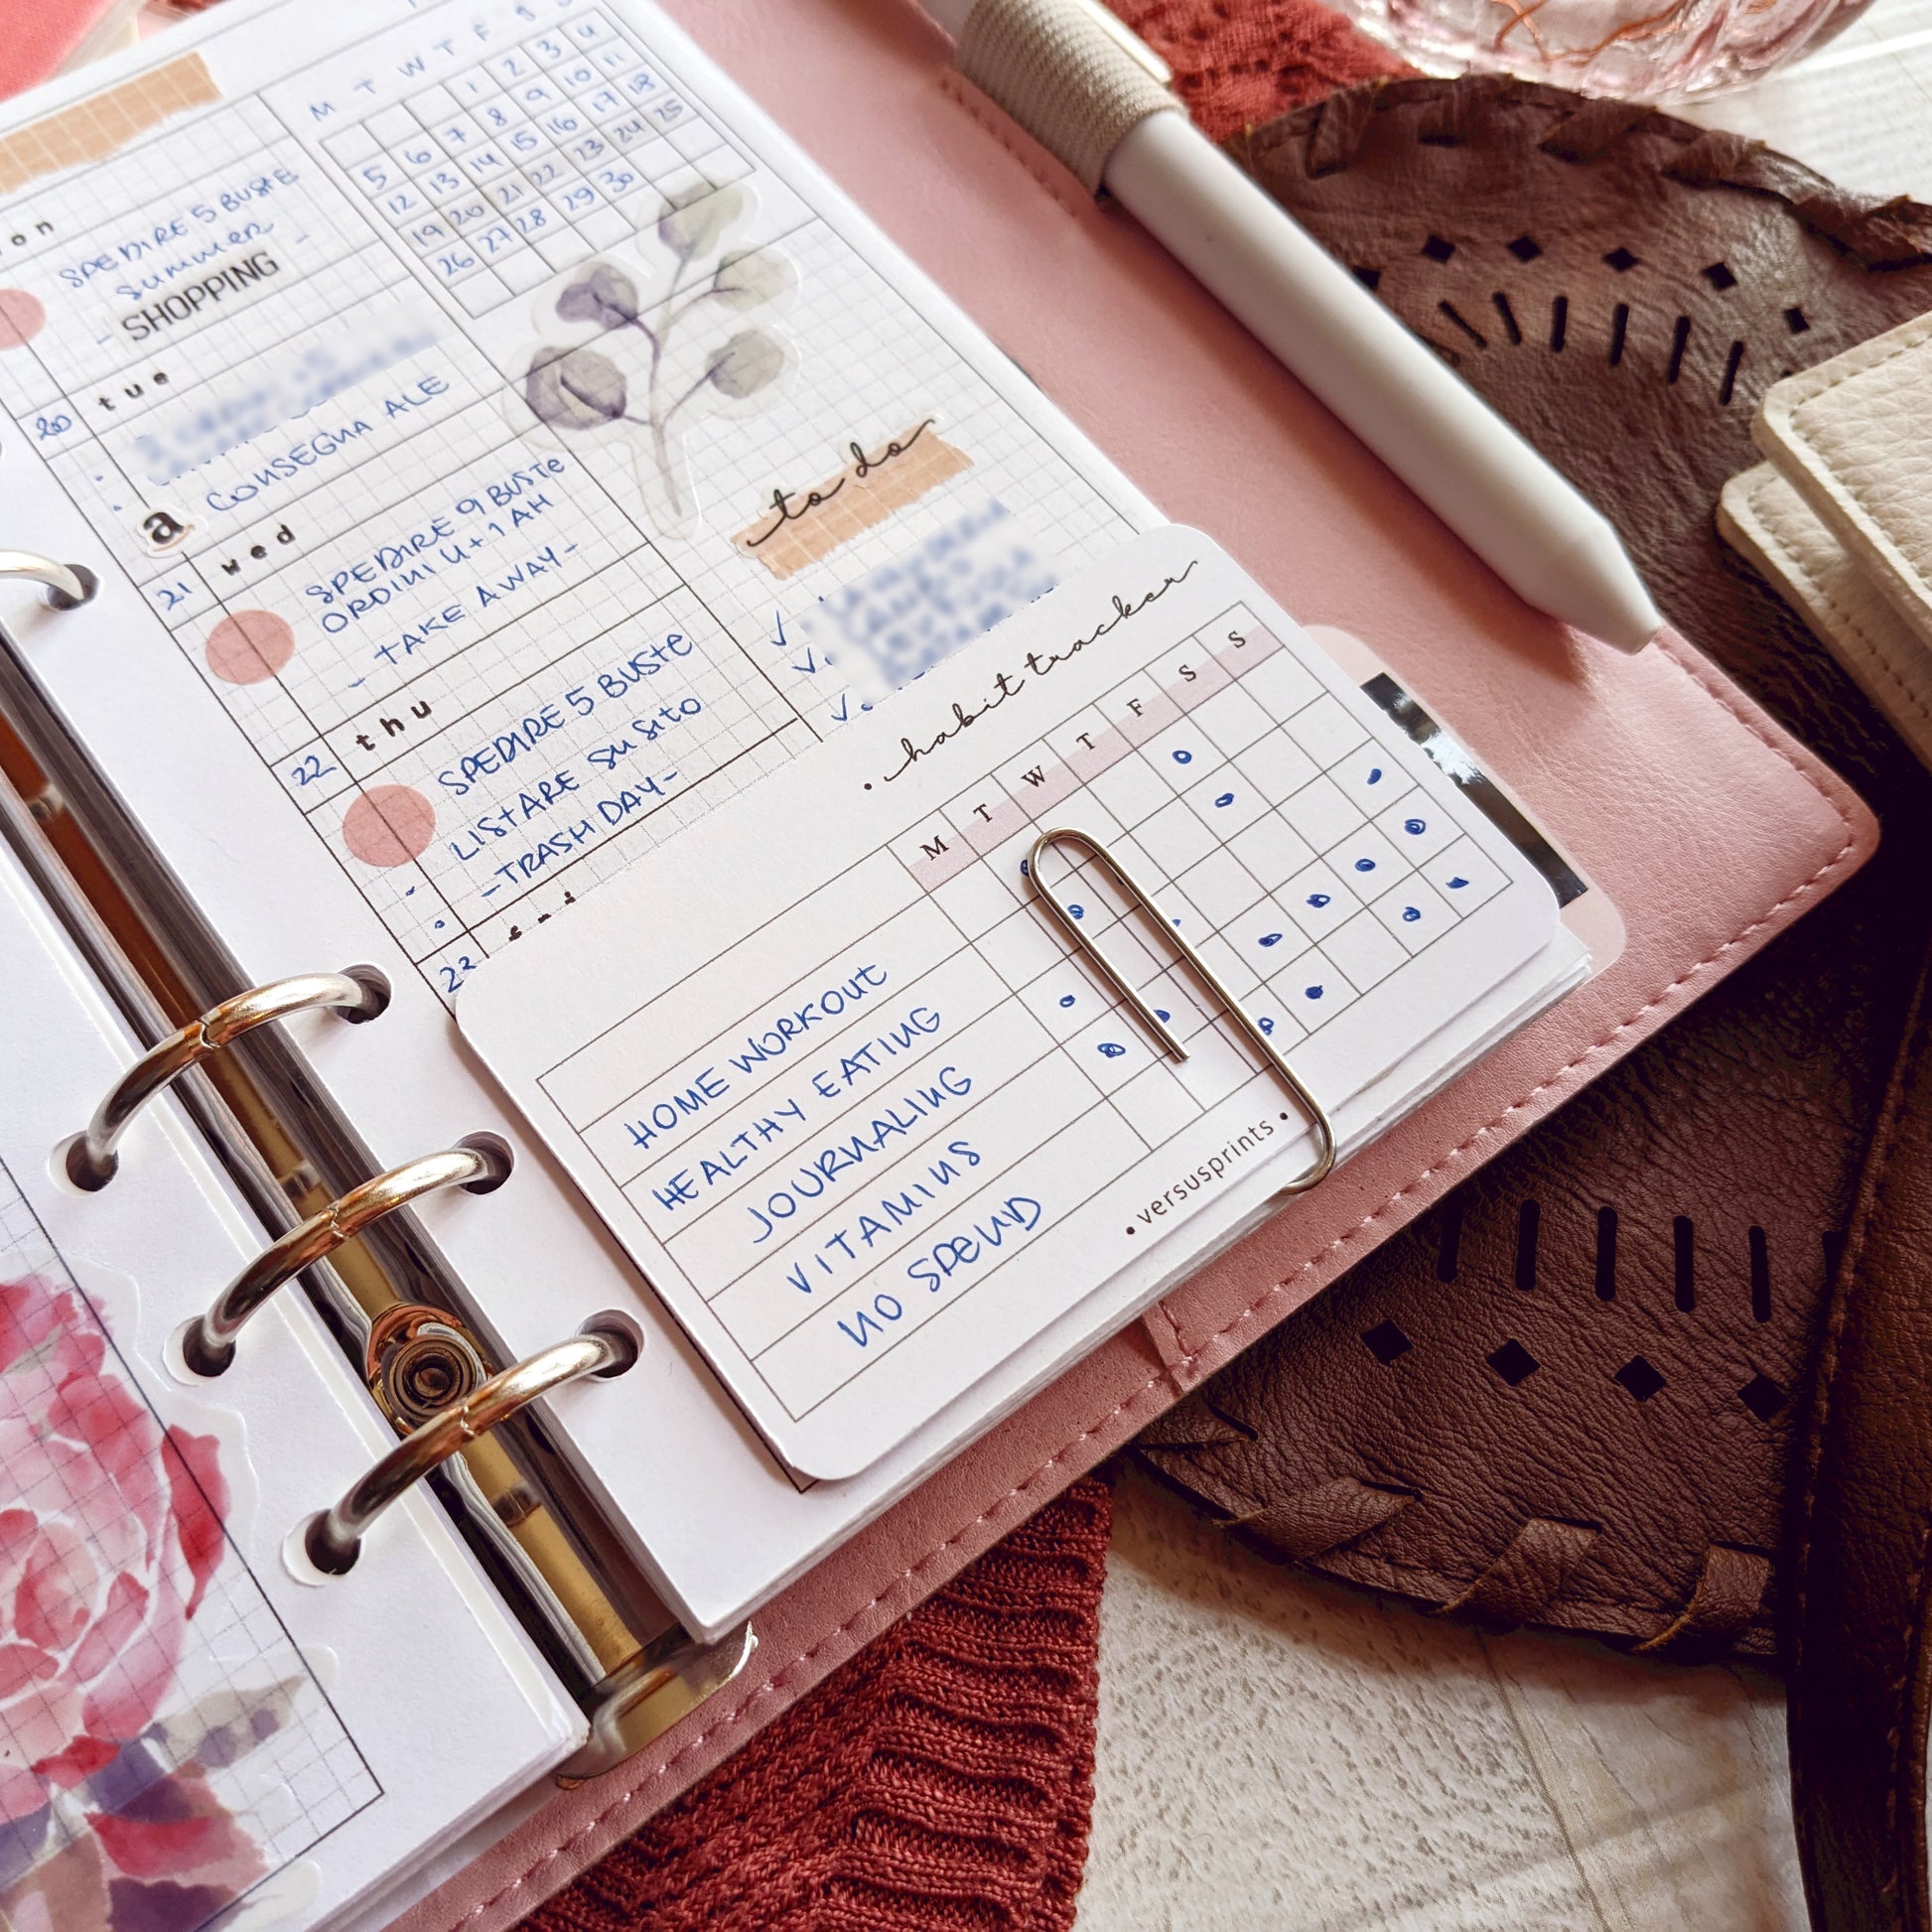 M T W T F S S
1 2 3 4
5 6 7 8 9 10 11
12 13 14 15 16 17 18
19 20 21 22 23 24 25
26 27 28 29 30
on
SPEDIRE 5 BUSTE
summer
- SHOPPING -
20 tue
a CONSEGNA ALE
21 wed
SPEDIRE 9 BUSTE
ORDINI U+1 AH
- TAKE AWAY -
22 thu
SPEDIRE 5 BUSTE
LISTARE SU SITO
- TRASH DAY -
23
to do
• habit tracker
M T W T F S S
HOME WORKOUT
HEALTHY EATING
JOURNALING
VITAMINS
NO SPEND
• versusprints •